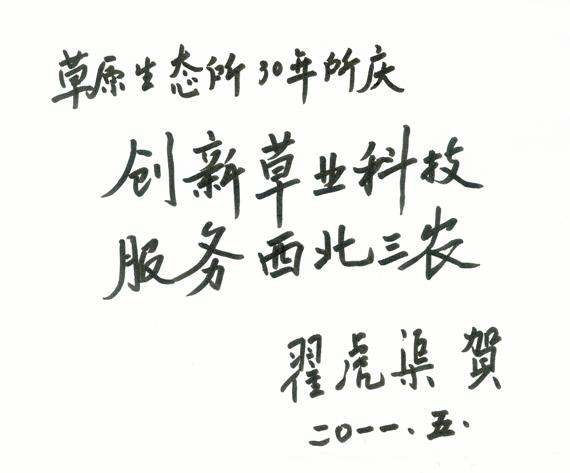 草原生态所30年所庆
创新草业科技
服务西北三农
翟虎渠 賀
二〇一一.五.